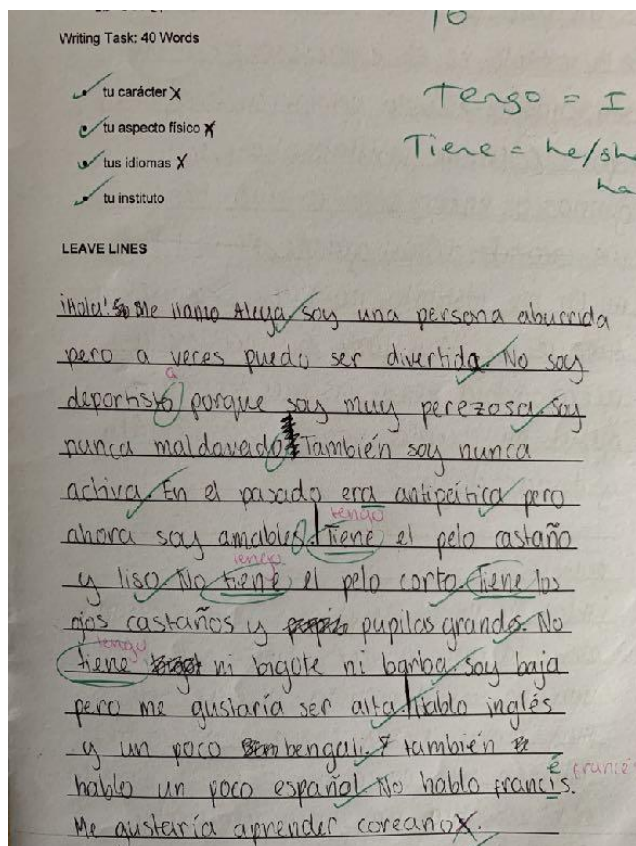 Writing Task: 40 Words
16
tu carácter X
Tengo = I
tu aspecto físico X
Tiene = he/sh
ha
tus idiomas X
tu instituto
LEAVE LINES
¡Hola! Me llamo Aleya, soy una persona aburrida
pero a veces puedo ser divertida. No soy
a
deportisto porque soy muy perezosa, soy
nunca maldavado. También soy nunca
activa. En el pasado era antipeítica pero
tengo
ahora soy amable. Tiene el pelo castaño
tengo
y liso. No tiene el pelo corto. Tiene los
ojos castaños y pupilas grandes. No
tengo
tiene ni bigote ni barba. soy baja
pero me gustaría ser alta. Hablo inglés
y un poco bengali. también
hablo un poco español. No hablo francis.
é
Me gustaría aprender coreano X.